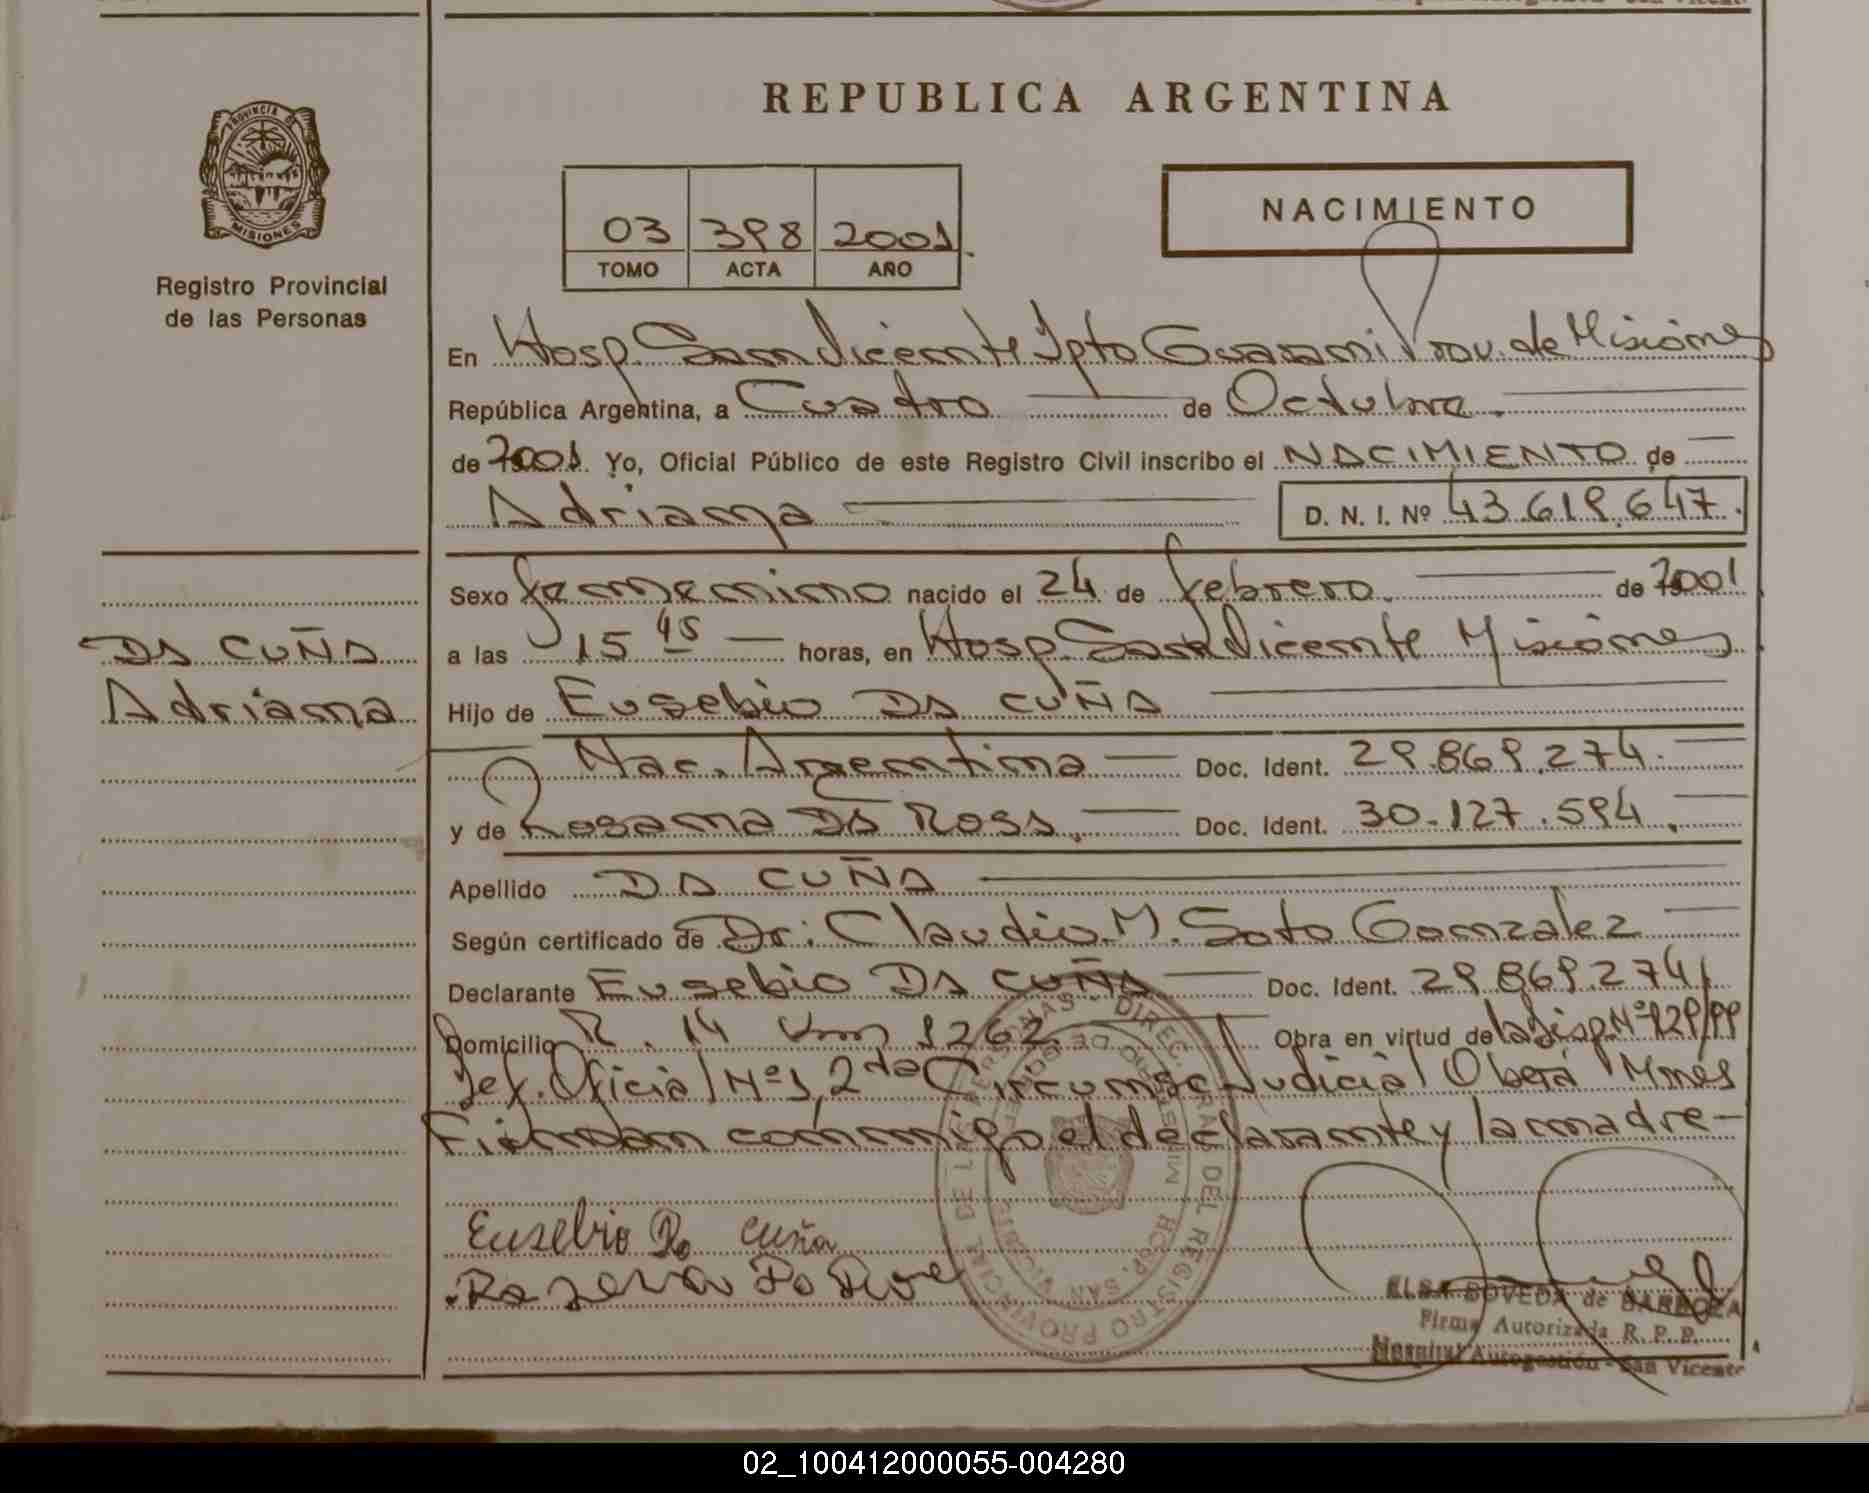 REPUBLICA ARGENTINA
PROVINCIA DE
MISIONES
Registro Provincial
de las Personas
03 398 2001
TOMO ACTA AÑO
NACIMIENTO
En Hosp. San Vicente Dpto Guarani Prov. de Misiones
República Argentina, a Cuatro de Octubre.
de 2001. Yo, Oficial Público de este Registro Civil inscribo el NACIMIENTO de
Adriana D. N. I. Nº 43.619.647.
Sexo femenino nacido el 24 de febrero. de 2001
DA CUÑA
Adriana
a las 15 45 horas, en Hosp. San Vicente Misiones
Hijo de Eusebio DA CUÑA
Nac. Argentina Doc. Ident. 29.869.274.
y de Rosana DA ROSA. Doc. Ident. 30.127.594.
Apellido DA CUÑA
Según certificado de Dr: Claudio M. Soto Gonzalez
Declarante Eusebio DA CUÑA Doc. Ident. 29.869.274
Domicilio R. 14 Km 1262. Obra en virtud de la Disp. Nº 929/99
Def. Oficial Nº 1, 2da Circunsc. Judicial Oberá Mnes
Firman conmigo el declarante y la madre-
Eusebio Da cuña
DIREC. GRAL DEL REGISTRO PROVINCIAL DE LAS PERSONAS
HOSP. SAN VICENTE
ELSA BOVEDA de BARBOZA
Firma Autorizada R. P. P.
Hospital Autogestión - San Vicente
02_100412000055-004280